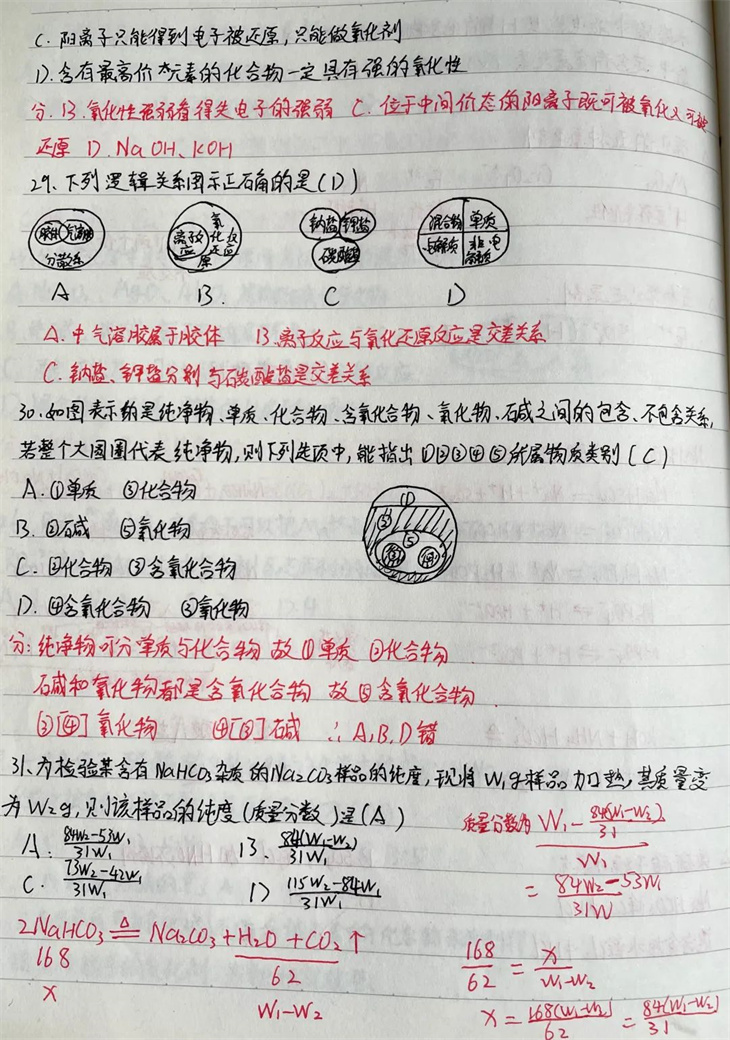 C. 阳离子只能得到电子被还原,只能做氧化剂
D. 含有最高价态元素的化合物一定具有强的氧化性
分. B. 氧化性强弱看得失电子的强弱 C. 位于中间价态的阳离子既可被氧化又可被
还原 D. NaOH、KOH
29、下列逻辑关系图示正确的是(D)
胶体 气溶胶 分散系
离子反应 氧化还原反应
钠盐 钾盐 碳酸盐
混合物 单质 电解质 非电解质
A B. C D
A. 中气溶胶属于胶体 B. 离子反应与氧化还原反应是交差关系
C. 钠盐、钾盐分别与碳酸盐是交差关系
30. 如图表示的是纯净物、单质、化合物、含氧化合物、氧化物、碱之间的包含、不包含关系,
若整个大圆圈代表纯净物,则下列选项中,能指出①②③④⑤所属物质类别(C)
A. ①单质 ③化合物
① ② ⑤
B. ②碱 ⑤氧化物
C. ②化合物 ⑤含氧化合物
D. ④含氧化合物 ⑤氧化物
分: 纯净物可分单质与化合物 故①单质 ②化合物
碱和氧化物都是含氧化合物 故⑤含氧化合物
③[④]氧化物 ④[③]碱 ∴A,B,D错
31、为检验某含有NaHCO₃杂质的Na₂CO₃样品的纯度,现将W₁g样品加热,其质量变
为W₂g,则该样品的纯度(质量分数)是(A)
A. (84W₂-53W₁)/(31W₁) B. (84(W₁-W₂))/(31W₁)
C. (73W₂-42W₁)/(31W₁) D (115W₂-84W₁)/(31W₁)
质量分数为 (W₁-(84(W₁-W₂))/31)/W₁
= (84W₂-53W₁)/(31W)
2NaHCO₃ ≜ Na₂CO₃+H₂O+CO₂↑
168 62
x W₁-W₂
168/62 = x/(W₁-W₂)
x = (168(W₁-W₂))/62 = (84(W₁-W₂))/31